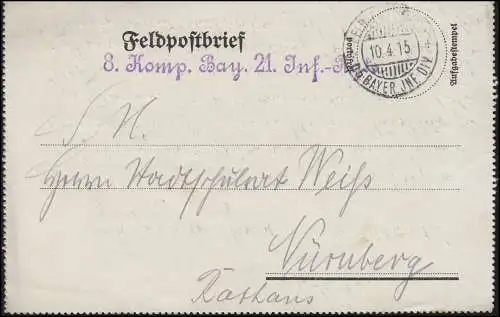 Feldpostbrief
8. Komp. Bay. 21. Inf.-R
10.4.15
BAYER. INF. DIV.
Aufgabestempel
S. H.
Herrn Stadtschulrat Weiß
Nürnberg
Rathaus